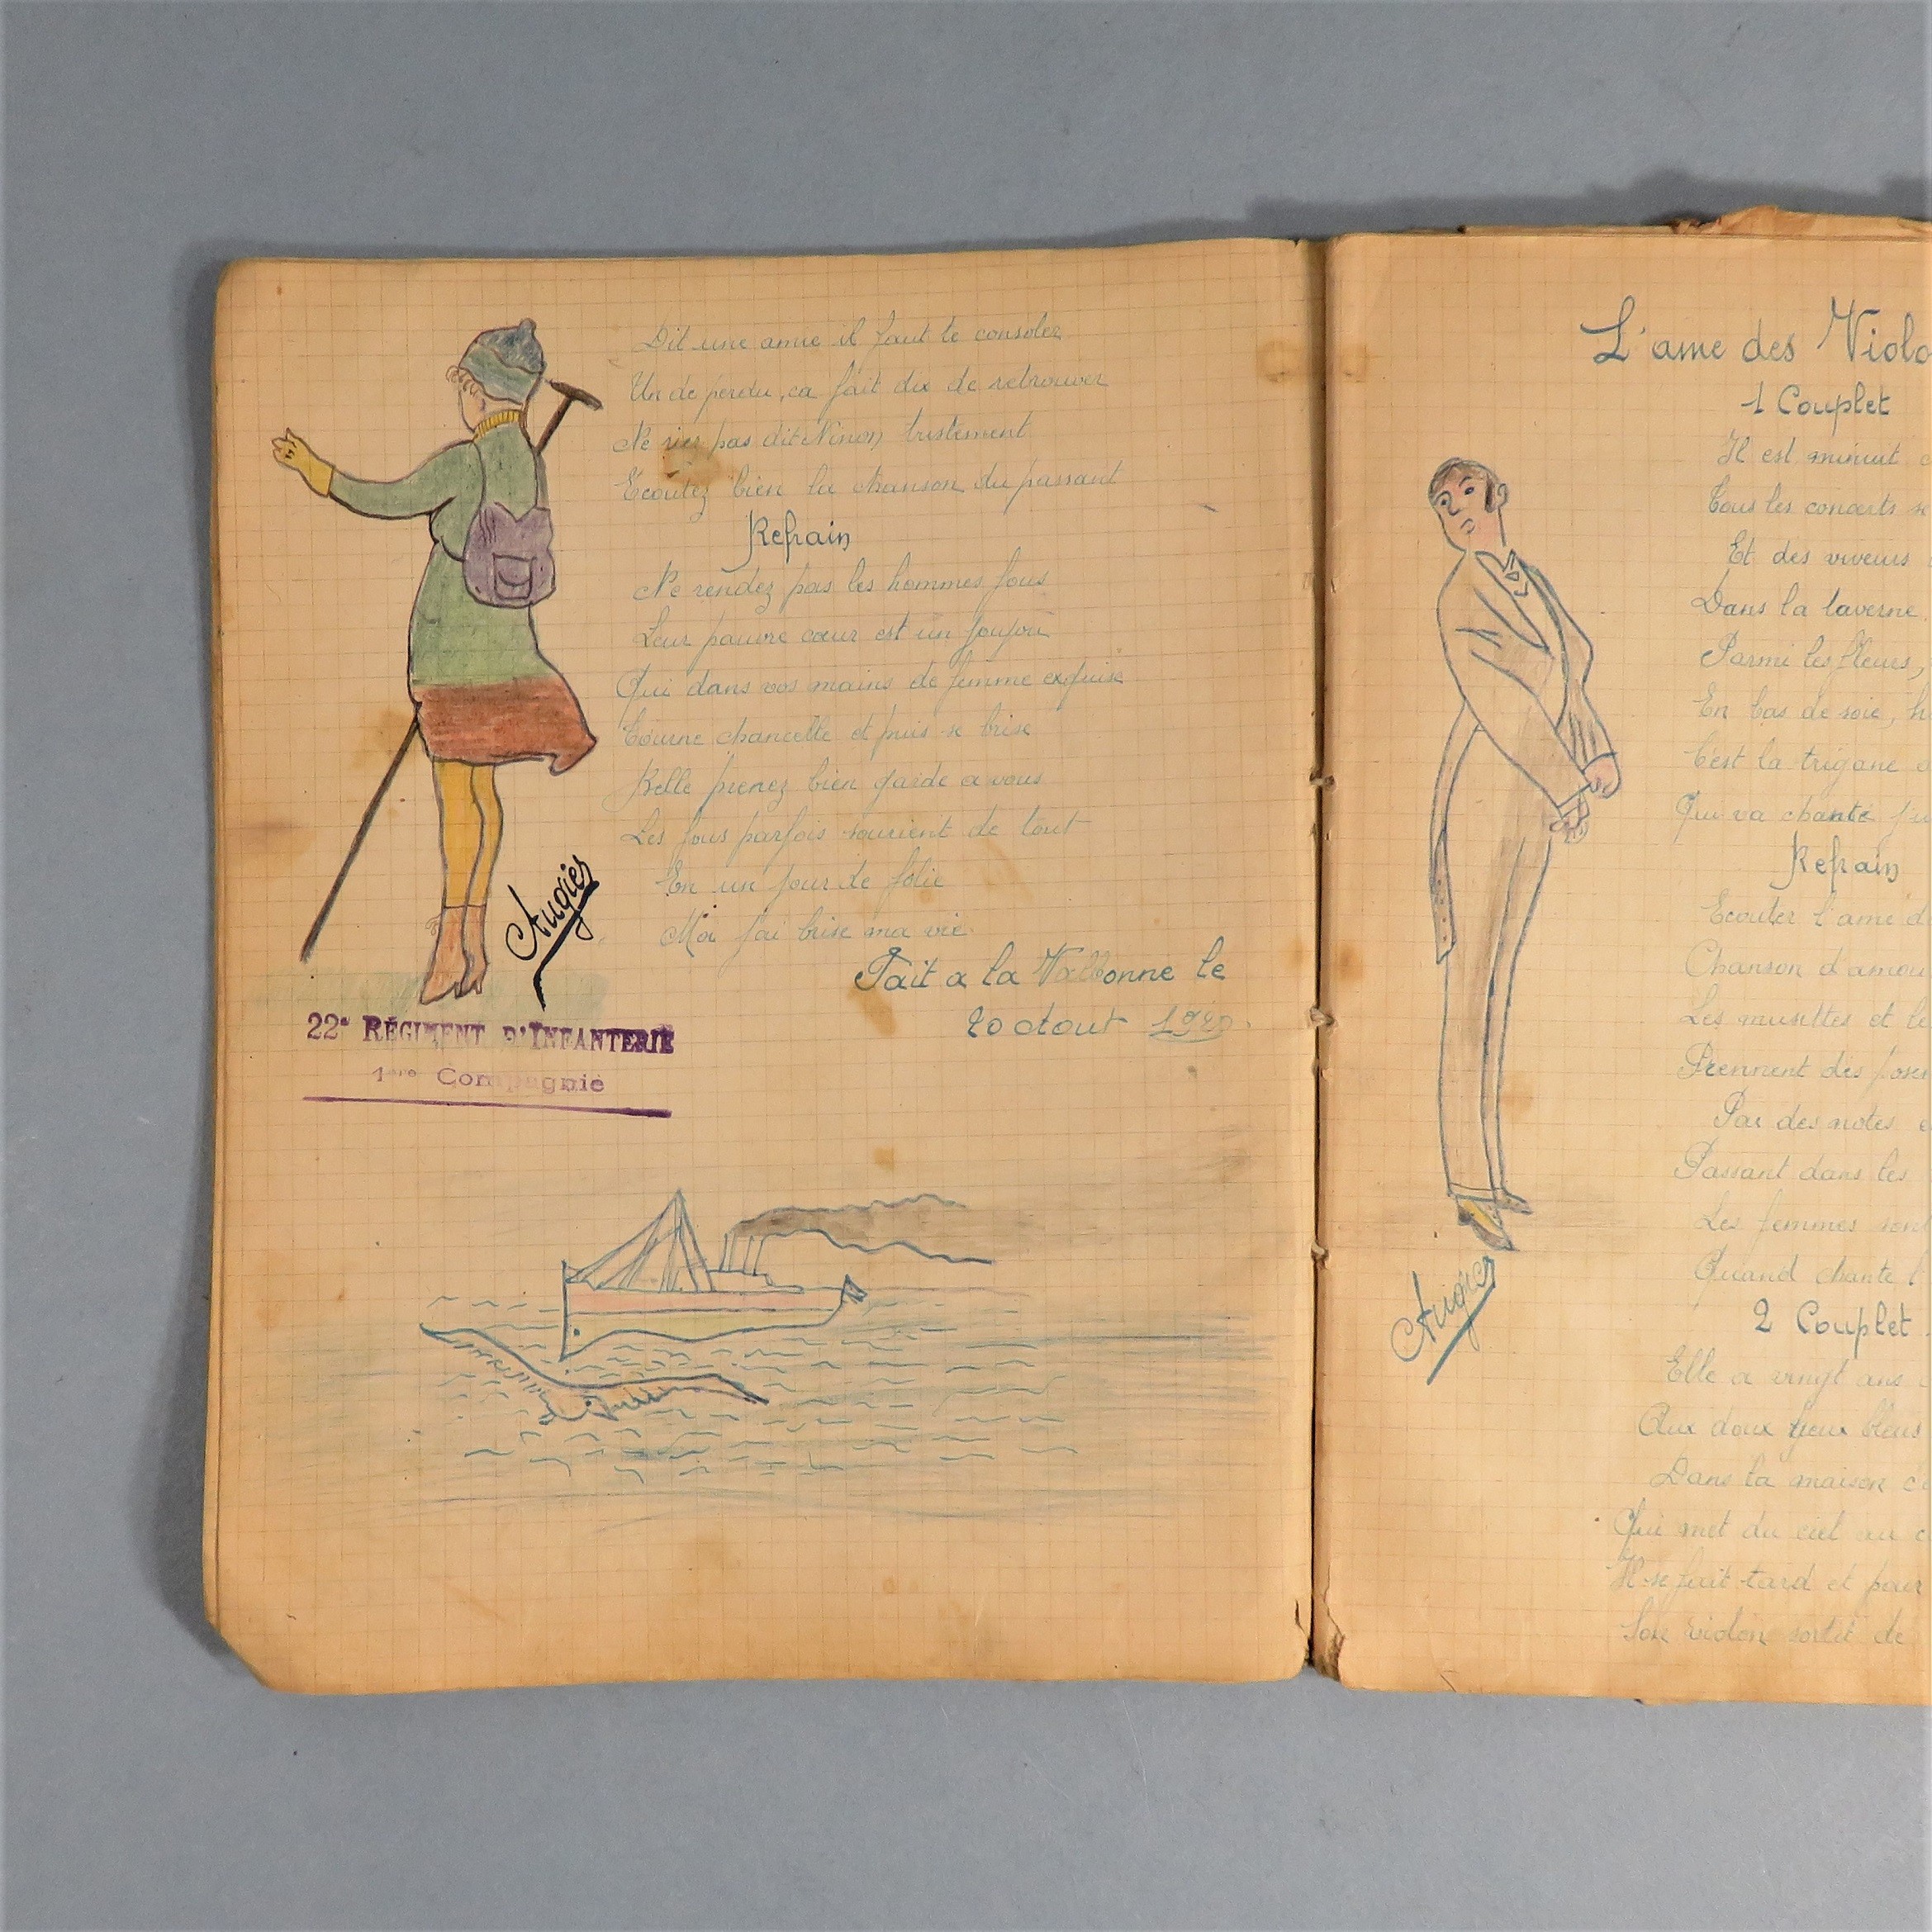 Dit une amie il faut te consoler
Un de perdu, ca fait dix de retrouver
Ne ries pas dit Ninon tristement
Ecoutez bien la chanson du passant
Refrain
Ne rendez pas les hommes fous
Leur pauvre cœur est un joujou
Qui dans vos mains de femme exquise
Tourne chancelle et puis se brise
Belle prenez bien garde a vous
Les fous parfois sourient de tout
En un jour de folie
Moi j'ai brise ma vie
Fait a la Valbonne le
20 Aout
Augier
22e RÉGIMENT D'INFANTERIE
1ere Compagnie
L'ame des Violo
1 Couplet
Il est minuit
Tous les concerts se
Et des viveurs
Dans la taverne
Parmi les fleurs,
En bas de soie, h
C'est la trigane
Qui va chanté
Refrain
Ecouter l'ame d
Chanson d'amou
Les musettes et le
Prennent des poses
Par des notes
Passant dans les
Les femmes sont
Quand chante l
2 Couplet
Elle a vingt ans
Aux doux yeux bleus
Dans la maison c
Qui met du ciel au c
Il se fait tard et pour
Son violon sortit de
Augier